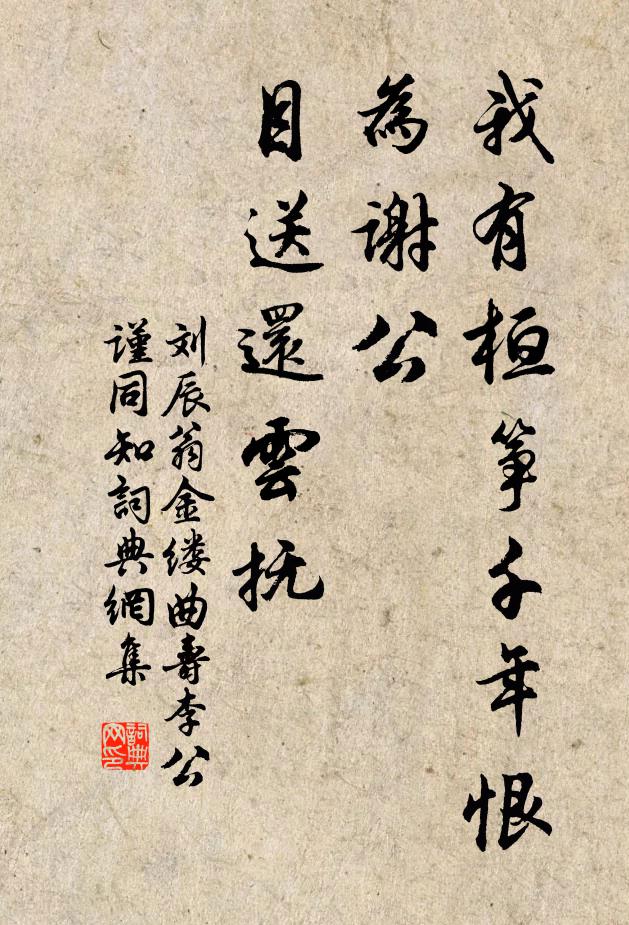 我有桓筝千年恨
為謝公
目送還雲抚
刘辰翁金缕曲壽李公
谨同知詞典網集
詞典网印